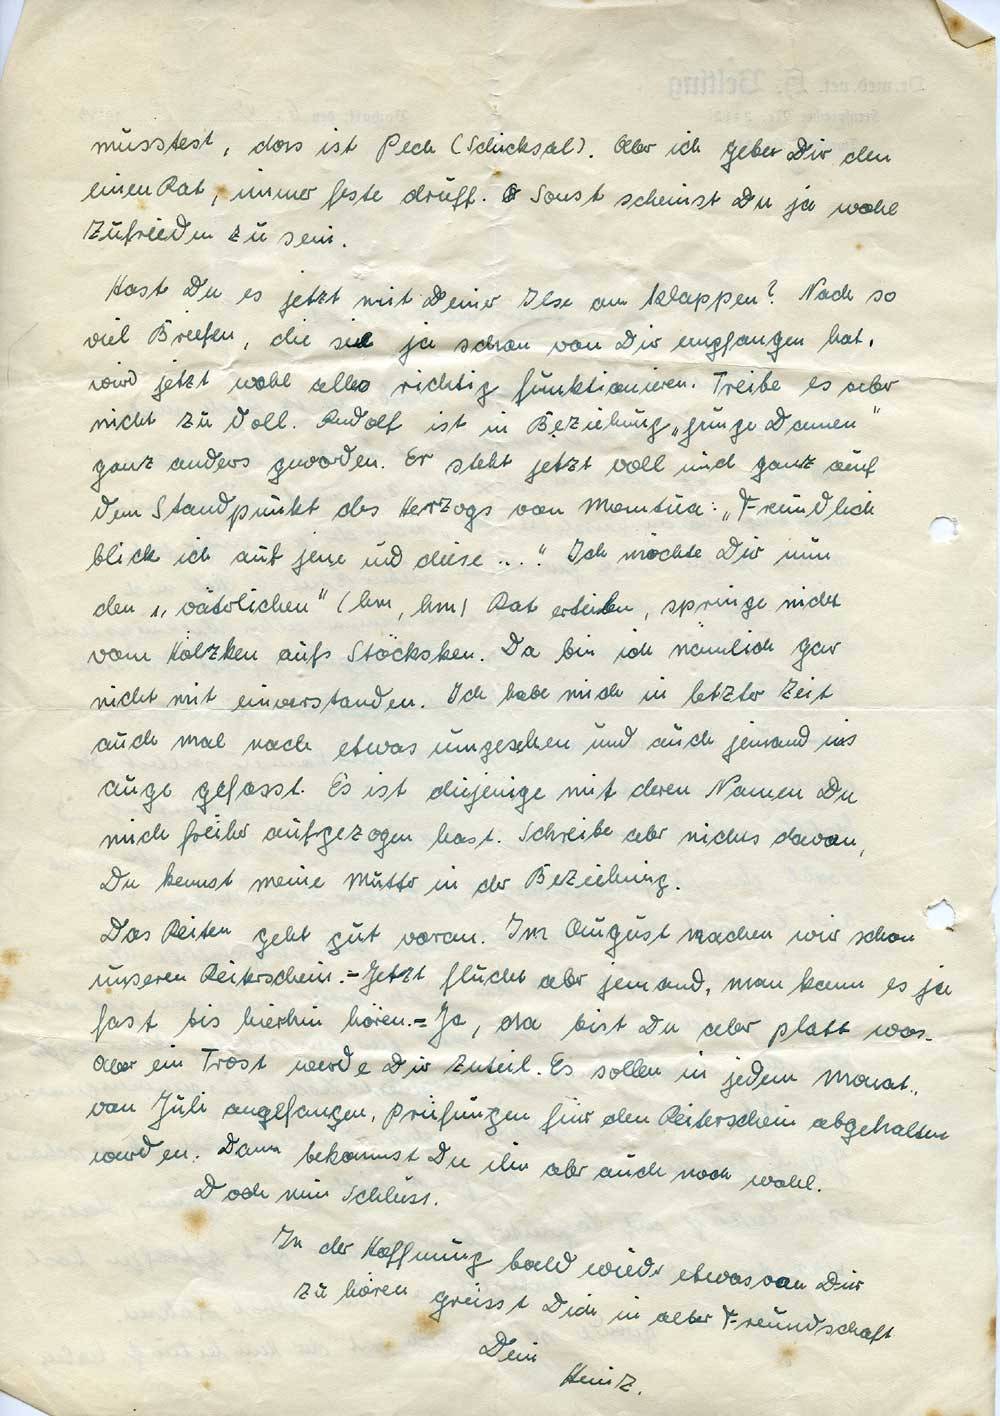 müsstest, das ist Pech (Schicksal). Aber ich geber Dir den
einen Rat, immer feste drüff. Sonst scheinst Du ja wohl
zufrieden zu sein.
Hast Du es jetzt mit Deiner Ilse am klappen? Nach so
viel Briefen, die sie ja schon von Dir empfangen hat,
wird jetzt wohl alles richtig funktionieren. Treibe es aber
nicht zu doll. Rudolf ist in Beziehung „junge Damen"
ganz anders geworden. Er steht jetzt voll und ganz auf
dem Standpunkt des Herzogs von Mantua: „Freundlich
blick ich auf jene und diese ...." Ich möchte Dir nun
den „väterlichen" (hm, hm) Rat erteilen, springe nicht
vom Hölzken aufs Stöcksken. Da bin ich nämlich gar
nicht mit einverstanden. Ich habe mich in letzter Zeit
auch mal nach etwas umgesehen und auch jemand ins
auge gefasst. Es ist diejenige mit deren Namen Du
mich früher aufgezogen hast. Schreibe aber nichts davon,
Du kennst meine Mutter in der Beziehung.
Das Reiten geht gut voran. Im August machen wir schon
unseren Reiterschein.=Jetzt flucht aber jemand, man kann es ja
fast bis hierhin hören.=Ja, da bist Du aber platt was.
Aber ein Trost werde Dir zuteil. Es sollen in jedem Monat,
von Juli angefangen, Prüfungen für den Reiterschein abgehalten
werden. Dann bekommst Du ihn aber auch noch wohl.
Doch nun Schluss.
In der Hoffnung bald wieder etwas von Dir
zu hören grüsst Dich in alter Freundschaft
Dein
Heinz.